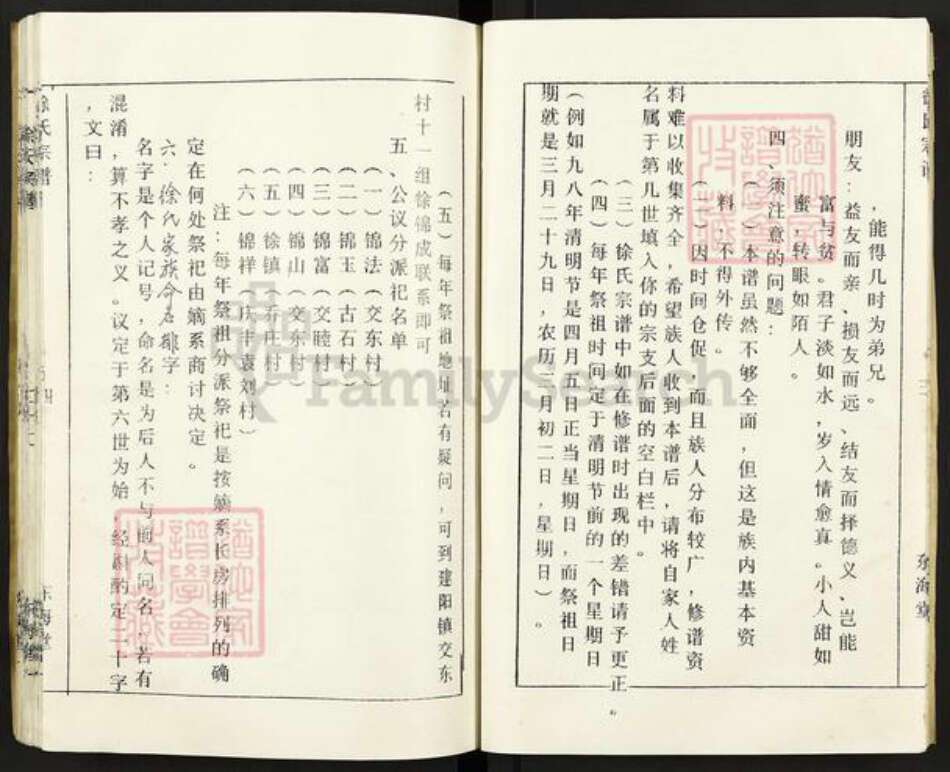 ，能得几时为弟兄。
朋友：益友而亲、损友而远、结友而择德义、岂能
富与贫。君子淡如水，岁入情愈真。小人甜如
蜜，转眼如陌人。
四、须注意的问题：
（一）本谱虽然不够全面，但这是族内基本资
料，不得外传。
（二）因时间仓促，而且族人分布较广，修谱资
料难以收集齐全，希望族人收到本谱后，请将自家人姓
名属于第几世填入你的宗支后面的空白栏中。
（三）徐氏宗谱中如在修谱时出现的差错请予更正
（四）每年祭祖时间定于清明节前的一个星期日
（例如九八年清明节是四月五日正当星期日，而祭祖日
期就是三月二十九日，农历三月初二日，星期日）。
东海堂
（五）每年祭祖地址若有疑问，可到建阳镇交东
村十一组徐锦成联系即可
五、公议分派祀名单
（一）锦法（交东村）
（二）锦玉（古石村）
（三）锦富（交睦村）
（四）锦山（交东村）
（五）徐镇（乔庄村）
（六）锦祥（庆丰袁刘村）
注：每年祖分派祭祀是按嫡系长房排列的确
定在何处祭祀由嫡系商讨决定。
六：徐氏家族命名排字：
名字是个人记号，命名是为后人不与前人同名，若有
混淆，算不孝之义。议定于第六世为始，经斟酌定二十字
，文曰：
徐氏宗谱
东海堂
FamilySearch